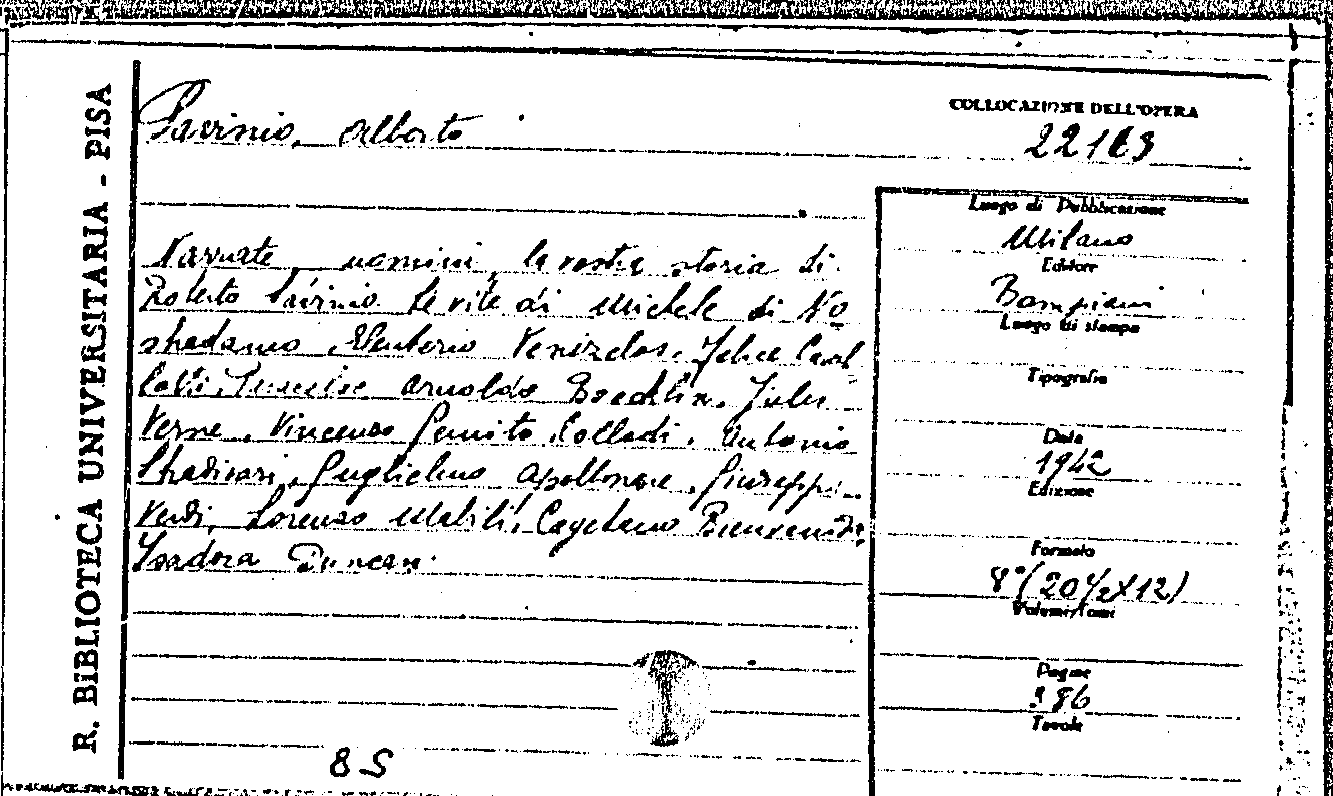 R. BIBLIOTECA UNIVERSITARIA - PISA
Savinio, Alberto
COLLOCAZIONE DELL'OPERA
22163
Narrate, uomini, la vostra storia di
Roberto Savinio. Le vite di Michele di No
stradamo, Eleuterio Venizelos, Felice Caval
lotti, Arnoldo Boecklin, Jules
Verne, Vincenzo Gemito, Collodi, Antonio
Stradivari, Guglielmo Apollinaire, Giuseppe
Verdi, Lorenzo Mabili, Cayetano Bienvenida
Isadora Duncan.
8 S
Luogo di Pubblicazione
Milano
Editore
Bompiani
Luogo di stampa
Tipografia
Data
1942
Edizione
Formato
8° (20½ X 12)
Volumi/Tomi
Pagine
386
Tavole